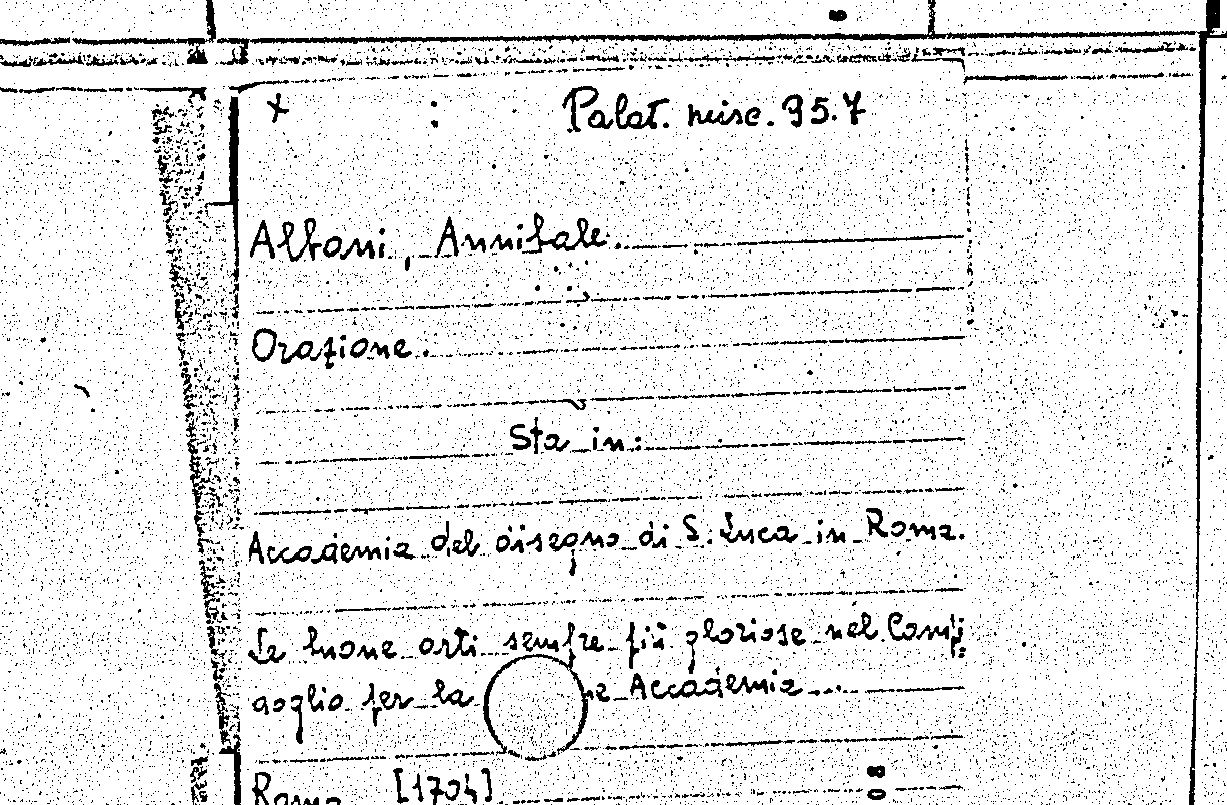 x : Palat. misc. 95.7
Albani, Annibale.
Orazione.
Sta in:
Accademia del disegno di S. Luca in Roma.
Le buone arti sempre più gloriose nel Campi
doglio per la ne Accademia ...
Roma [1704]